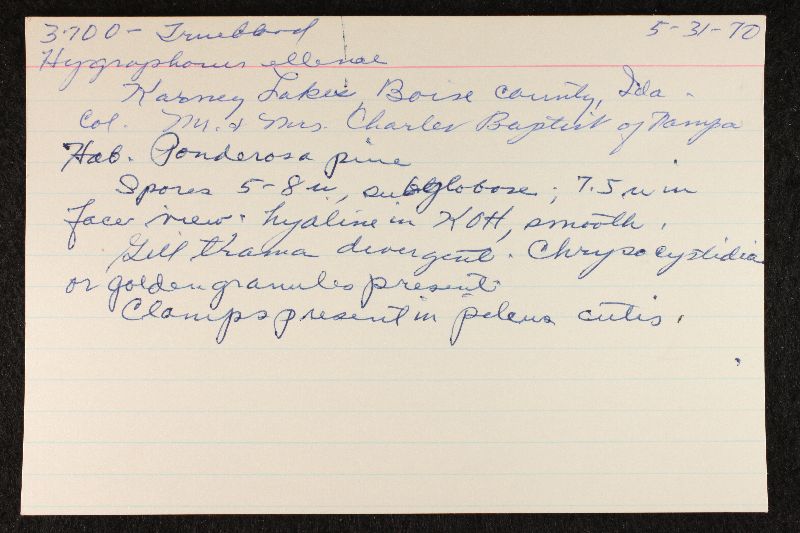 3700- Trueblood 5-31-70
Hygrophorus ellenae
Karney Lakes, Boise County, Ida.
Col. Mr. & Mrs. Charles Baptist of Nampa
Hab. Ponderosa pine
Spores 5-8 u, subglobose; 7.5 u in
face view. hyaline in KOH, smooth.
Gill trama divergent. Chrysocystidia
or golden granules present.
Clamps present in pileus cutis.